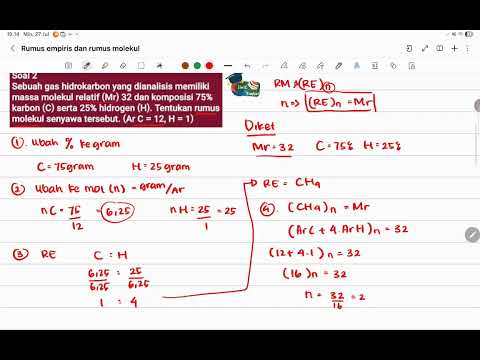 15.14 Min, 27 Jul
Rumus empiris dan rumus molekul
Soal 2
Sebuah gas hidrokarbon yang dianalisis memiliki
massa molekul relatif (Mr) 32 dan komposisi 75%
karbon (C) serta 25% hidrogen (H). Tentukan rumus
molekul senyawa tersebut. (Ar C = 12, H = 1)
RM = (RE)n
n => (RE)n = Mr
Diket
Mr = 32 C = 75% H = 25%
1. Ubah % ke gram
C = 75 gram H = 25 gram
2 Ubah ke mol (n) = gram/Ar
nC = 75/12 = 6,25 nH = 25/1 = 25
3 RE C : H
6,25/6,25 : 25/6,25
1 : 4
RE = CH4
4. (CH4)n = Mr
(Ar C + 4. Ar H)n = 32
(12 + 4.1)n = 32
(16)n = 32
n = 32/16 = 2